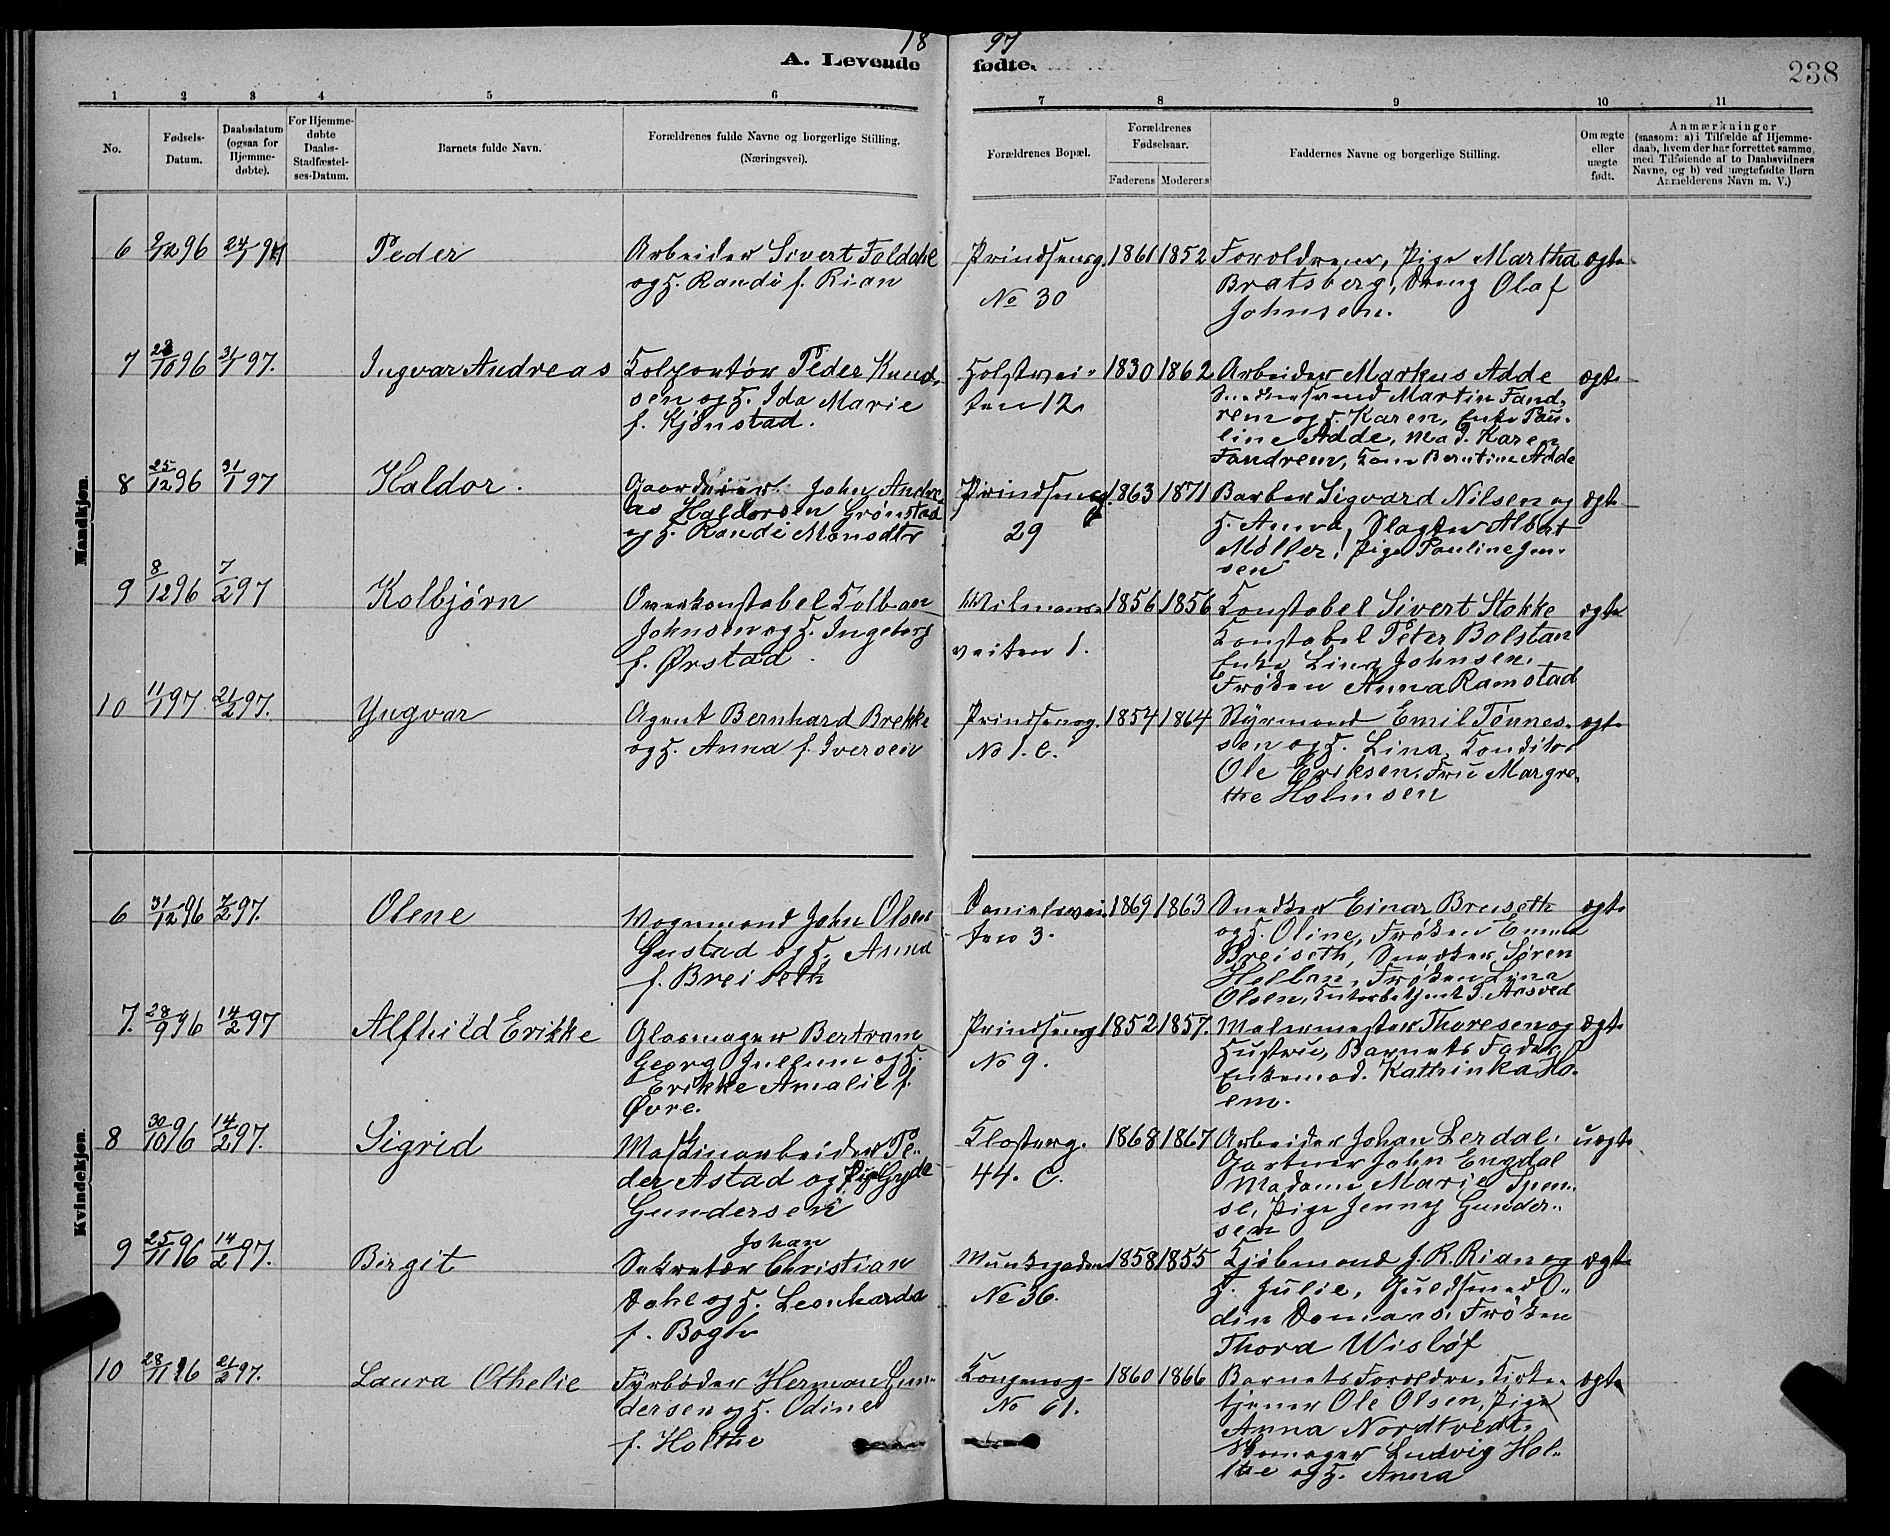 18 97
A. Levende fødte.
238
1 2 3 4 5 6 7 8 9 10 11
No.
Fødsels-Datum.
Daabsdatum (ogsaa for Hjemmedøbte).
For Hjemmedøbte Daabs-Stadfæstelses-Datum.
Barnets fulde Navn.
Forældrenes fulde Navne og borgerlige Stilling.
(Næringsvei).
Forældrenes Bopæl.
Forældrenes Fødselsaar.
Faderens Moderens
Faddernes Navne og borgerlige Stilling.
Om ægte eller uægte født.
Anmærkninger
(saasom: a) i Tilfælde af Hjemmedaab, hvem der har forrettet samme, med Tilføiende af to Daabsvidners Navne, og b) ved uægtefødte Børn Anmelderens Navn m. V.)
Mandkjøn.
6 9/12 96 24/1 97 Peder Arbeider Sivert Folddal Prindsensg. 1861 1852 Forældrene, Pige Martha ægte
og H. Randi f. Rian No 30 Bratsberg, Dreng Olaf
Johnsen.
7 28/10 96 31/1 97. Ingvar Andreas Kolportør Peder Knud- Holstvei- 1830 1862 Arbeider Markus Adde ægte
sen og H. Ida Marie ten 12 Snedkersvend Martin Fand-
f. Kjønstad. rem og H. Karen, Enke Pau-
line Adde, Mad. Karen
Fandrem, Kone Berntine Adde
8 25/12 96 31/1 97 Haldor. John Andre- Prindseng. 1863 1871 Barber Sigvard Nilsen og ægte
as Haldorsen Grønstad 29 H. Anna, Slagter Albert
og H. Randi Monsdtr Møller, Pige Pauline Jen-
sen
9 8/12 96 7/2 97 Kolbjørn Overkonstabel Kolban Wilmans- 1856 1856 Konstabel Sivert Stokke ægte
Johnsen og H. Ingeborg veiten 1. Konstabel Peter Bolstan
f. Ørstad. Enke Lina Johnsen,
Frøken Anna Ramstad
10 11/1 97 21/2 97. Yngvar Agent Bernhard Brekke Prindsensg. 1854 1864 Styrmand Emil Tønnes- ægte
og H. Anna f. Iversen No 1. c. sen og H. Lina, Konditor
Ole Eriksen, Fru Margre-
the Holmsen
Kvindekjøn.
6 31/12 96 7/2 97. Olene Vognmand John Olsen Danielsvei- 1869 1863 Snedker Einar Breiseth ægte
Gustad og H. Anna ten 3. og H. Oline, Frøken Emma
f. Breiseth Breiseth, Snedker Søren
Hellan, Frøken Lina
Olsen, Kontorbetjent J. Aasved
7. 28/9 96 14/2 97 Alfhild Erikke Glasmager Bertram Prindseng 1852 1857. Malermester Thoresen og ægte
Georg Jullum og H. No 9. Hustru, Barnets Fader,
Erikke Amalie f. Enkemad. Kathinka Ho-
Øvre. em.
8 30/10 96 14/2 97. Sigrid Maskinarbeider Pe- Klosterg. 1868 1867 Arbeider Johan Lerdal, uægte
der Astad og Pige Gyda 44. C. Gartner John Engdal
Gundersen Madame Marie
Pige Jenny Gunder-
sen
9 25/11 96 14/2 97. Birgit Sekretær Johan Christian Munkegaden 1858 1855 Kjøbmand J. R. Rian og ægte
Dahl og H. Leonharda No 36. H. Julie, Guldsmed O-
f. Bogh din Domaas, Frøken
Thora Wisløf
10 28/11 96 21/2 97. Laura Othelie Fyrbøder Herman Gun- Kongensg 1860 1866 Barnets Forældre, Kirke- ægte
dersen og H. Odine No 61. tjener Ole Olsen, Pige
f. Holthe Anna Nordtvedt,
Skomager Ludvig Hol-
the og H. Anna